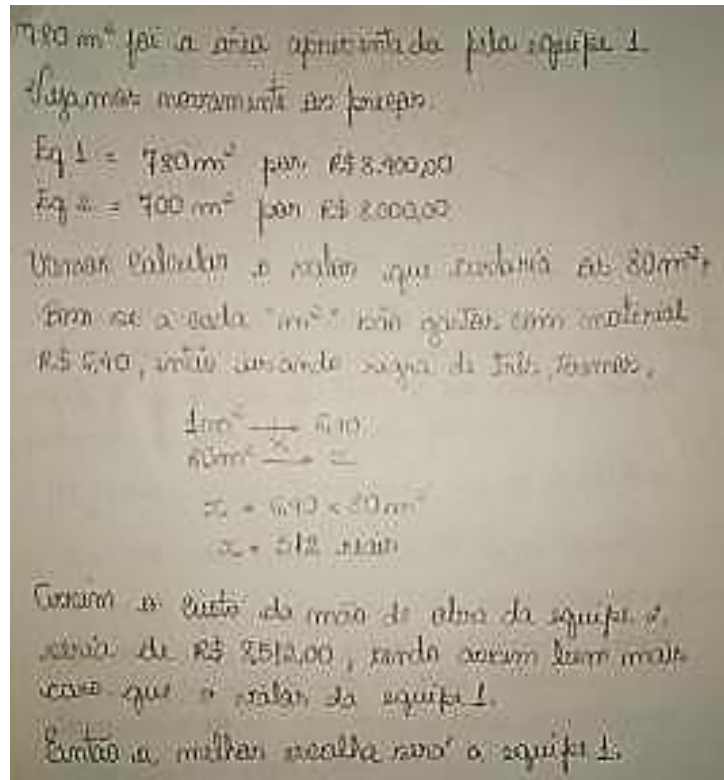 780 m² foi a área apresentada pela equipe 1
Vejamos novamente os preços.
Eq 1 = 780 m² por R$ 8.400,00
Eq 2 = 700 m² por R$ 8.000,00
Vamos calcular o valor que custaria os 80m²,
bem se a cada "m²" são gastos com material
R$ 6,40, então usando regra de três, temos,
1m² → 6,40
80m² → x
x = 6,40 x 80m²
x = 512 reais
Assim o custo da mão de obra da equipe 2
seria de R$ 8512,00, sendo assim bem mais
caro que o valor da equipe 1.
Então a melhor escolha será a equipe 1.